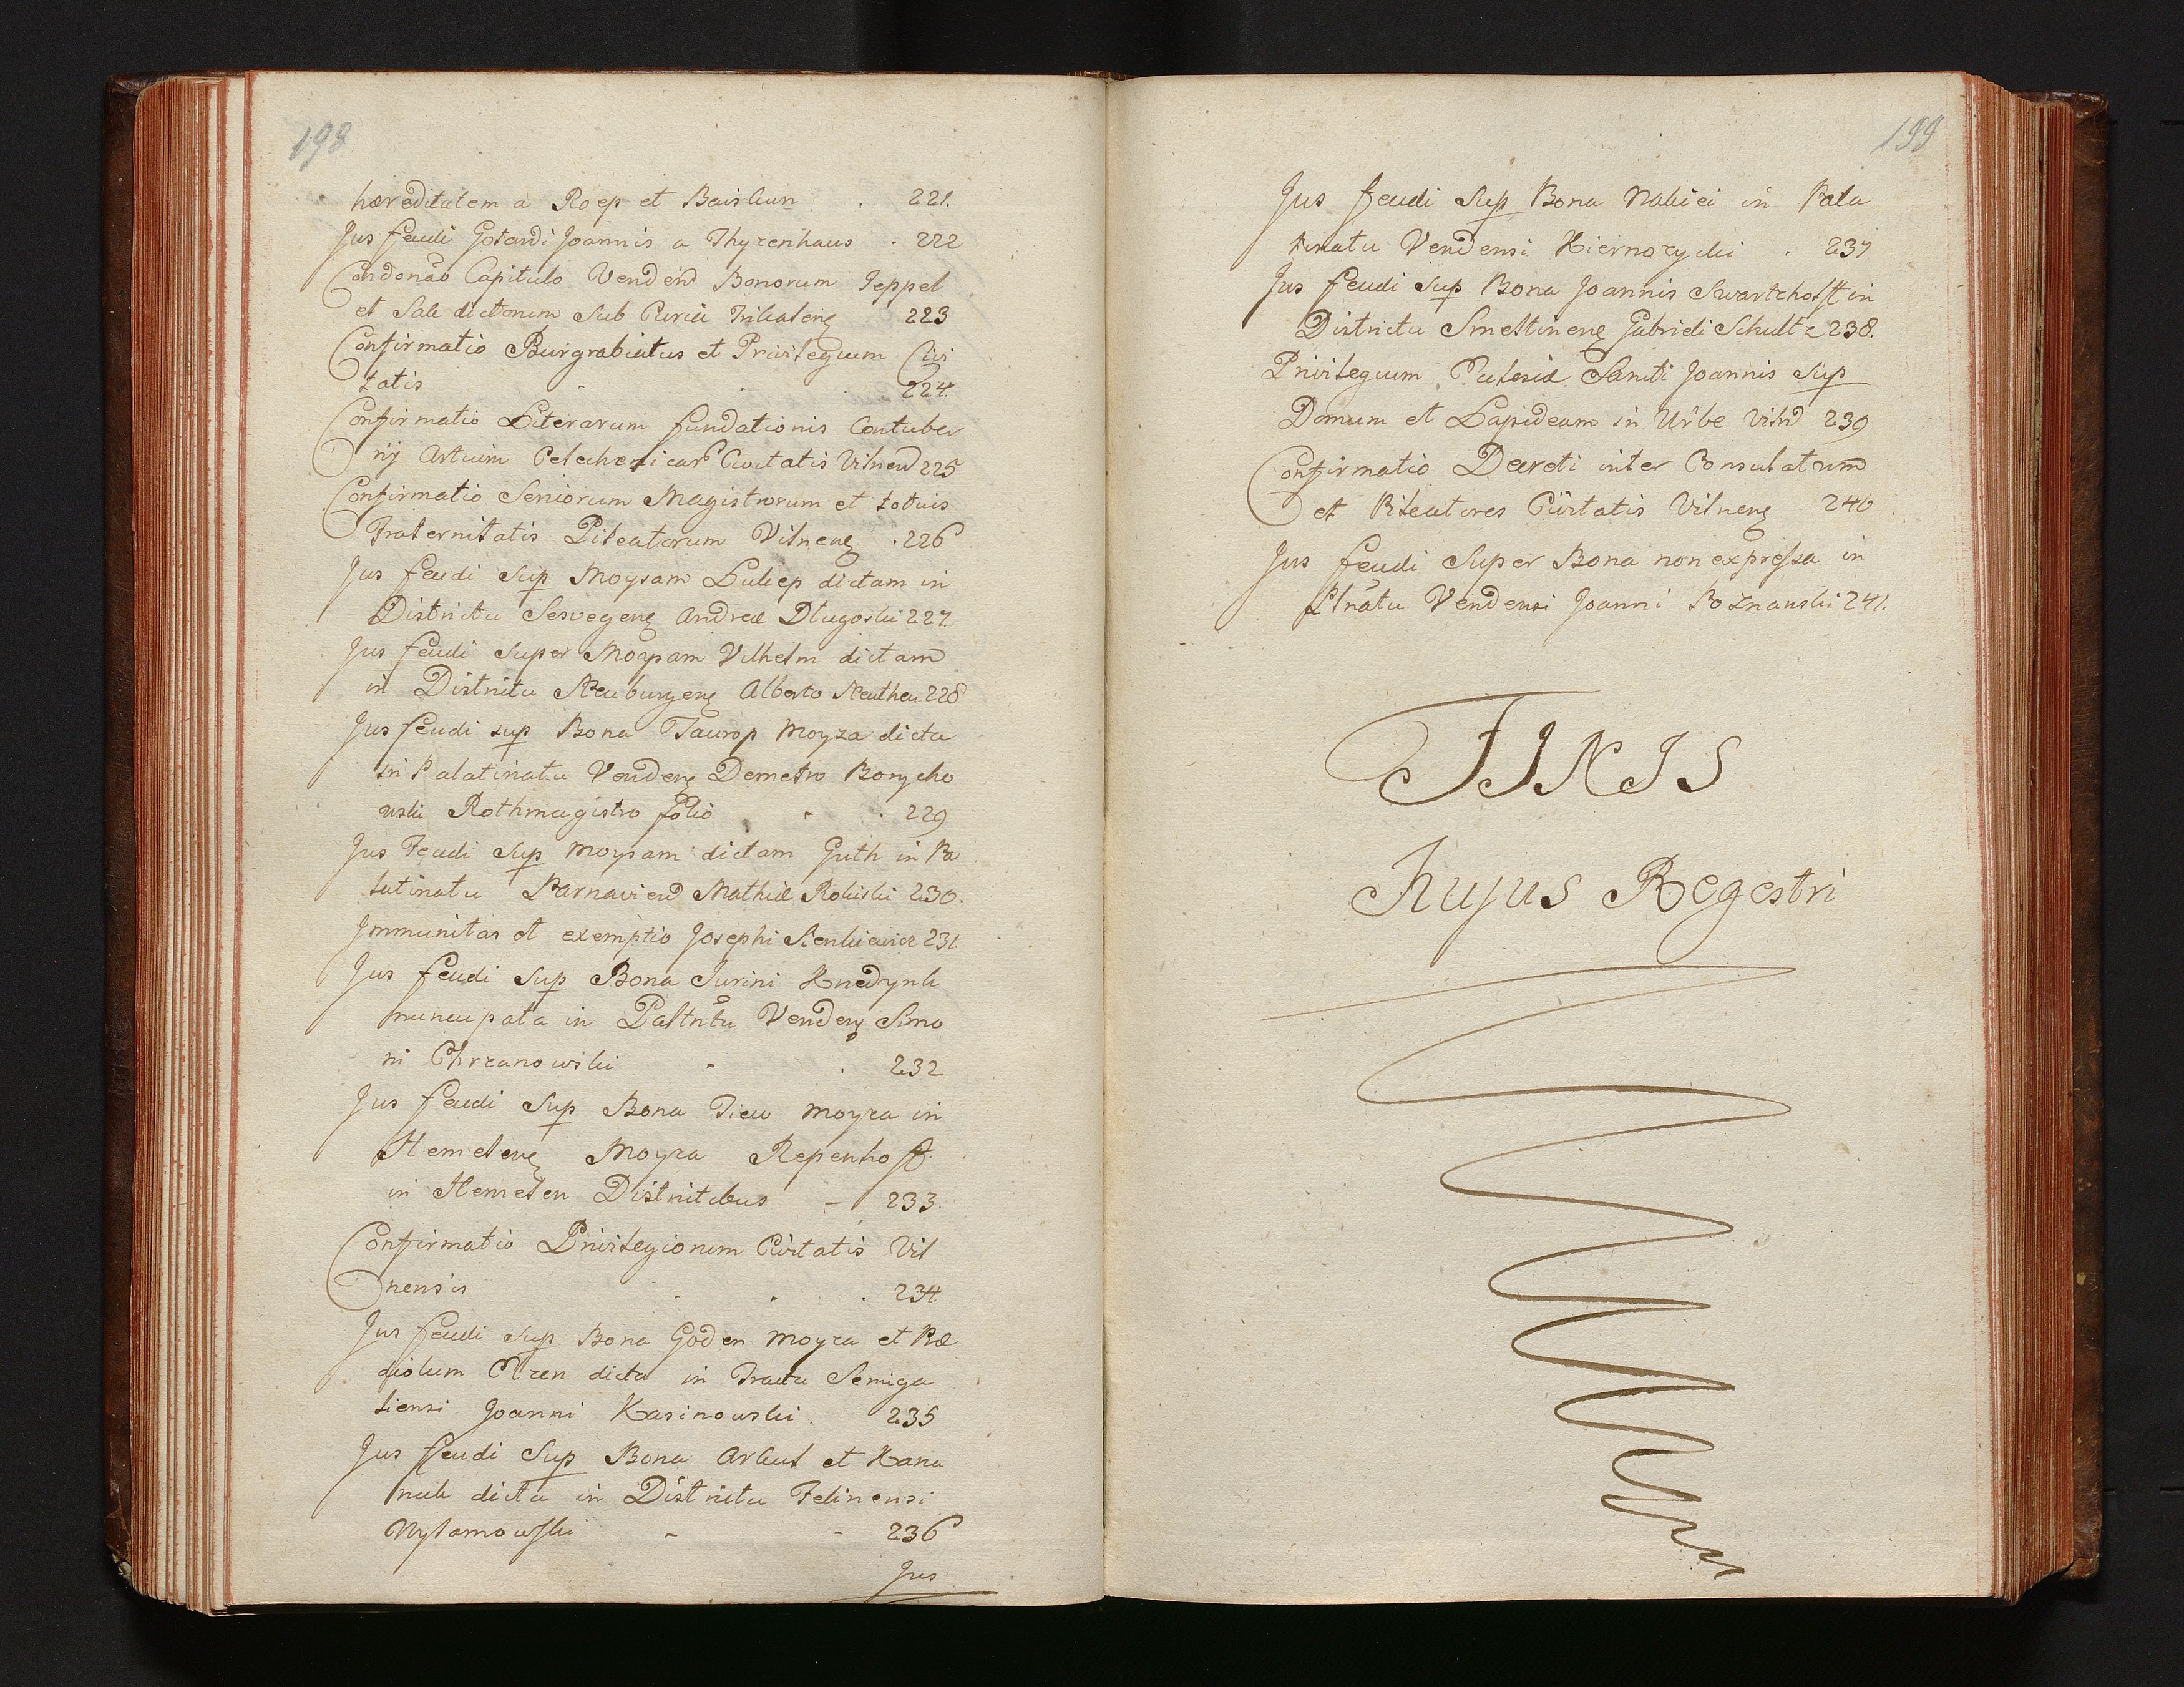 198
hæreditatem a Roep et Baiskun . 221.
Jus feudi Gotardi Joannis a Thyzenhaus . 222
Condonao Capitulo Venden Bonorum Jeppel
et Sale dictorum Sub Curia Trikateng 223
Confirmatio Burgrabiatus et Privilegium Civi
tatis 224.
Confirmatio Literarum fundationis Contuber
nij Artium Civitatis Vilnen 225
Confirmatio Seniorum Magistrorum et totius
Fraternitatis Pileatorum Vilneng . 226
Jus feudi Sup Moysam Luliep dictam in
Districtu Sesvegeng Andreæ Dlugoski 227.
Jus feudi Super Moysam Vilhelm dictam
in Districtu Neuburgeng Alberto 228
Jus feudi sup Bona Taurop Moyza dicta
in Palatinatu Vendeng Demetro Borycho
wski Rothmagistro folio . . 229
Jus Feudi Sup Moysam dictam Guth in Pa
latinatu Parnavien Mathiæ Rokiski 230.
Immunitas et exemptio Josephi Sienkiewicz 231.
Jus feudi Sup Bona Jurini
nuncupata in Paltntu Vendeng Simo
ni Chrzanowski - . 232
Jus feudi Sup Bona Tiew Moyza in
Hemeleng Moyza Repenhoff
in Hemelen Districtibus - 233.
Confirmatio Privilegiorum Civitatis Vil
nensis . . . 234
Jus feudi Sup Bona Goden Moyza et Præ
diolum dicta in Tractu Semiga
liensi Joanni Kasinowski. 235
Jus feudi Sup Bona Arkul et Kana
nuk dicta in Districtu Felinensi
- - 236
Jus
199
Jus feudi Sup Bona Nakiei in Pala
tinatu Vendensi . 237
Jus feudi Sup Bona Joannis Swartzhofft in
Districtu Smeltineng Gabrieli Schultz 238.
Privilegium Ecclesiæ Sancti Joannis Sup
Domum et Lapideam in Urbe Viln 239
Confirmatio Decreti inter Consulatum
et Pileatores Civitatis Vilneng 240
Jus feudi Super Bona non expressa in
Plnatu Vendensi Joanni Poznanski 241.
FINIS
hujus Regestri